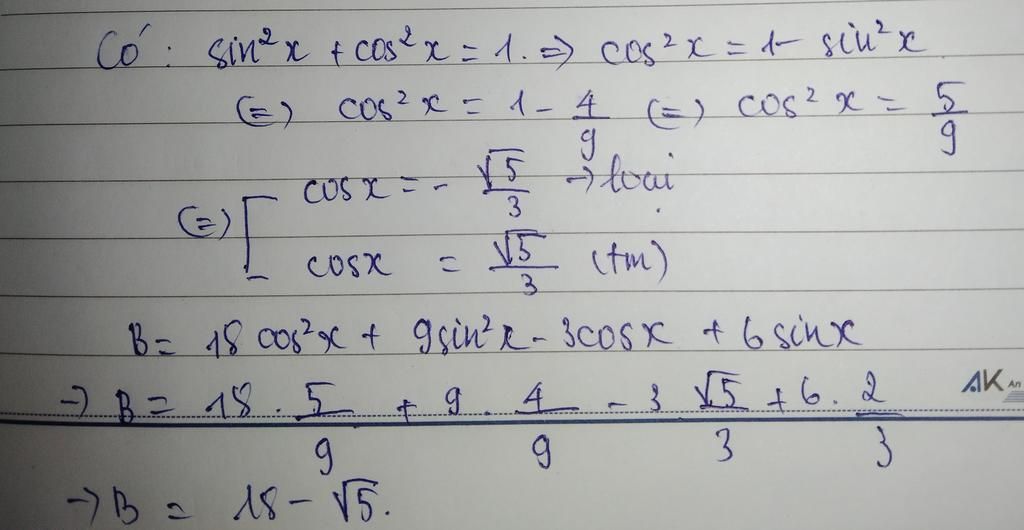 Có: sin²x + cos²x = 1. => cos²x = 1 - sin²x
(=) cos²x = 1 - 4/9 (=) cos²x = 5/9
(=) [ cosx = - √5/3 → loại
cosx = √5/3 (tm)
B = 18 cos²x + 9sin²x - 3cosx + 6 sinx
→ B = 18 . 5/9 + 9 . 4/9 - 3 √5/3 + 6 . 2/3
AK An
→ B = 18 - √5.